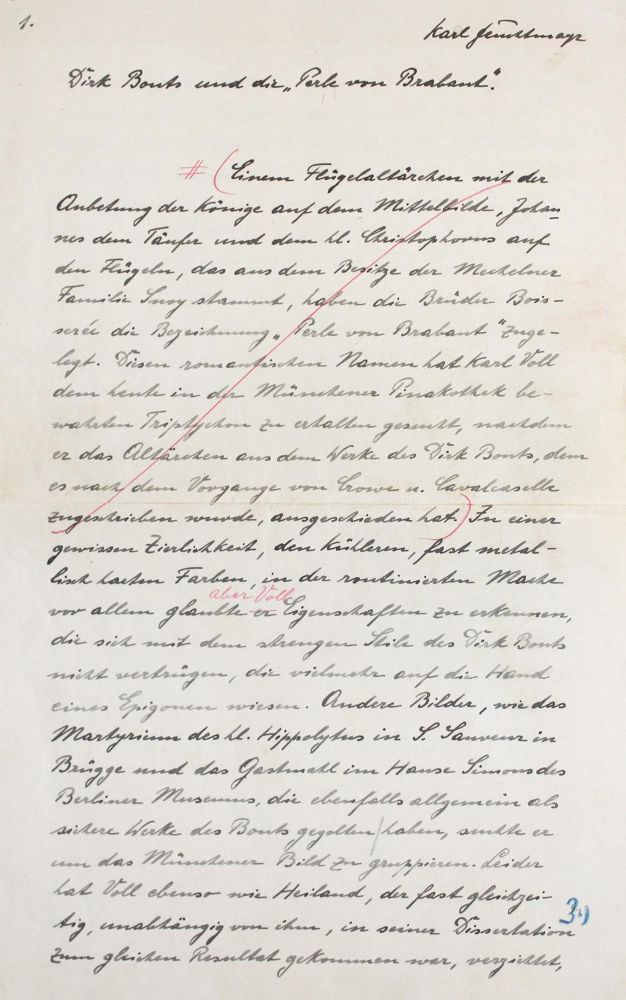 1.
Karl Feuchtmayr
Dirk Bouts und die „Perle von Brabant“.
# (Einem Flügelaltärchen mit der
Anbetung der Könige auf dem Mittelbilde, Johan-
nes dem Täufer und dem hl. Christophorus auf
den Flügeln, das aus dem Besitze der Mechelner
Familie Snoy stammt, haben die Brüder Bois-
serée die Bezeichnung „Perle von Brabant“ zuge-
legt. Diesen romantischen Namen hat Karl Voll
dem heute in der Münchener Pinakothek be-
wahrten Triptychon zu erhalten gesucht, nachdem
er das Altärchen aus dem Werke des Dirk Bouts, dem
es nach dem Vorgange von Crowe u. Cavalcaselle
zugeschrieben wurde, ausgeschieden hat.) In einer
gewissen Zierlichkeit, den kühleren, fast metal-
lisch harten Farben, in der routinierten Mache
aber Voll
vor allem glaubte er Eigenschaften zu erkennen,
die sich mit dem strengen Stile des Dirk Bouts
nicht vertrügen, die vielmehr auf die Hand
eines Epigonen wiesen. Andere Bilder, wie das
Martyrium des hl. Hippolytus in S. Sauveur in
Brügge und das Gastmahl im Hause Simons des
Berliner Museums, die ebenfalls allgemein als
sichere Werke des Bouts gegolten haben, suchte er
um das Münchener Bild zu gruppieren. Leider
hat Voll ebenso wie Heiland, der fast gleichzei-
tig, unabhängig von ihm, in seiner Dissertation
zum gleichen Resultat gekommen war, verzichtet,